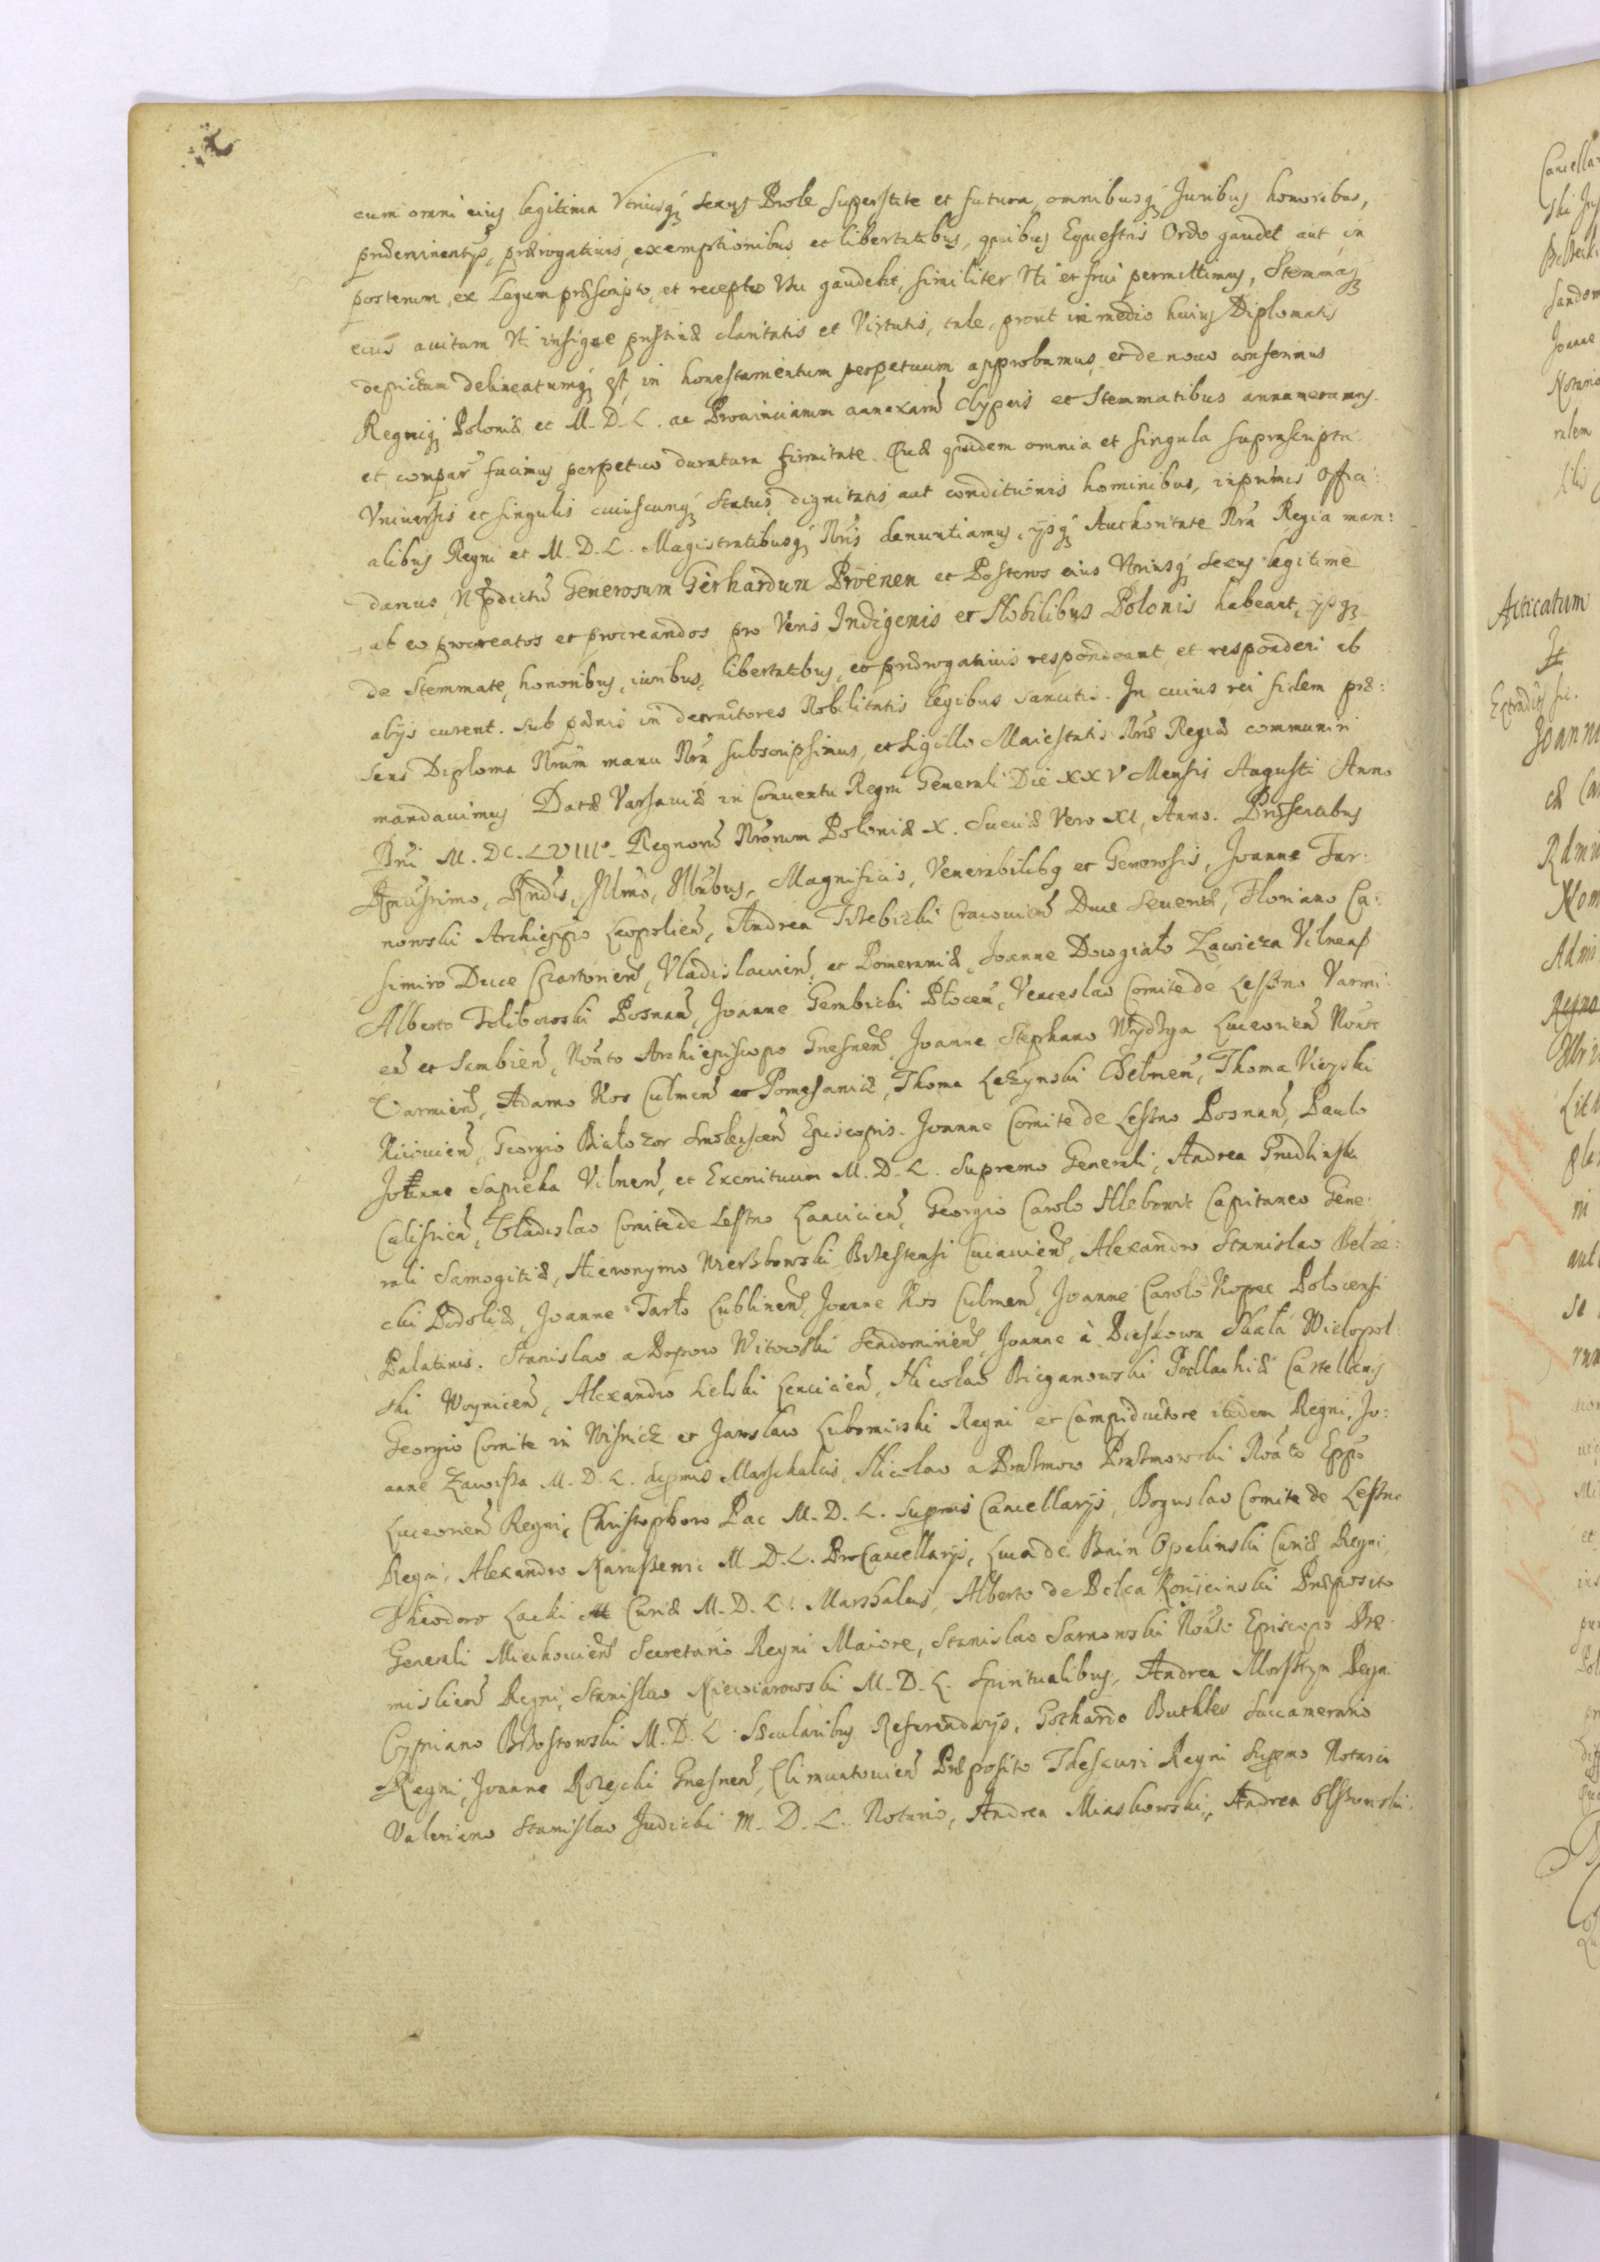 cum omni eius legitima Utriusq sexus Prole superstite et futura, omnibusq Juribus honoribus,
præeminentys, prærogativis, exemptionibus et libertatibus, quibus Equestris Ordo gaudet aut in
posterum, ex Legum præscripto, et recepto Usu gaudebit, similiter Uti et frui permittimus, Stemmaq
eius avitum Uti insigne pristinæ claritatis et Virtutis, tale, prout in medio huius Diplomatis
depictum delineatumq est, in honestamentum perpetuum approbamus, et de novo conferimus
Regniq Poloniæ et M. D. L. ac Provinciarum annexarũ Clypeis et Stemmatibus annumeramus.
et compar facimus perpetuo duratura firmitate. Quæ quidem omnia et singula suprascripta
Universis et singulis cuiuscunq Status, dignitatis aut conditionis hominibus, inprimis Offici:
alibus Regni et M. D. L. Magistratibusq Nris denuntiamus, ysq Authoritate Nra Regia man:
damus, Ut pdictũ Generosum Gerhardum Proenen et Posteros eius Utriusq sexus legitime
ab eo procreatos et procreandos pro Veris Indigenis et Nobilibus Polonis habeant, ysq
de Stemmate, honoribus, iuribus, libertatibus, et prærogativis respondeant et responderi ab
alijs curent. sub pænis in detractores Nobilitatis legibus sancitis. In cuius rei fidem præ:
sens Diploma Nrum manu Nra subscripsimus, et Sigillo Maiestatis Nræ Regiæ communiri
mandavimus Datæ Varsaviæ in Conventu Regni Generali Die XXV Mensis Augusti Anno
Dni M. DC. LVIIIo. Regnorũ Nrorum Poloniæ X. Sueciæ Vero XI, Anno. Præsentibus
Rmissimo, Rndis, Illmo, Illribus, Magnificis, Venerabilibq et Generosis, Joanne Tar:
nowski Archieppo Leopolieñ, Andrea Trzebicki Cracovieñ Duce Severiæ, Floriano Ca:
simiro Duce Czartorieñ, Vladislavieñ et Pomeraniæ, Joanne Dowgiało Zawisza Vilneñ
Alberto Tolibowski Posnañ, Joanne Gembicki Płoceñ, Venceslao Comite de Leszno Varmi
eñ et Sambieñ, Noñto Archiepiscopo Gnesneñ, Joanne Stephano Wydżga Luceorieñ Noñto
Varmieñ, Adamo Kos Culmeñ et Pomesaniæ, Thoma Leżynski Chelmeñ, Thoma Vieyski
Kiiovieñ, Georgio Białozor Smolensceñ Episcopis. Joanne Comite de Leszno Posnañ, Paulo
Joanne Sapieha Vilneñ, et Exercituum M. D. L. Supremo Generali, Andrea Grudzinski
Calisieñ, Vladislao Comite de Leszno Lancicieñ, Georgio Carolo Hlebowit Capitaneo Gene:
rali Samogitiæ, Hieronymo Wierzbowski Brzestensi Cuiavieñ, Alexandro Stanislao Belze:
cki Podoliæ, Joanne Tarło Lublineñ, Joanne Kos Culmeñ, Joanne Carolo Kopec Polocensi
Palatinis. Stanislao a Popow Witowski Sendomirieñ, Joanne à Pieskowa Skała Wielopol:
ski Woyniceñ, Alexandro Sielski Lencicieñ, Nicolao Bieganowski Podlachiæ Castellanis
Georgio Comite in Wisnicz et Jaroslaw Lubomirski Regni et Campiductore itidem Regni, Jo:
anne Zawisza M. D. L. supmis Marschalcis, Nicolao a Prażmow Prażmowski Noãto Eppo
Luceorieñ Regni, Christophoro Pac M. D. L. Supmis Cancellarijs, Boguslao Comite de Leszno
Regni, Alexandro Naruszewic M. D. L. ProCancellarijs, Luca de Bnin Opalinski Curiæ Regni,
Theodoro Lacki Curiæ M. D. L. Marshalcis, Alberto de Belca Koniicinski Præposito
Generali Miechovieñ Secretario Regni Maiore, Stanislao Sarnowski Noãto Episcopo Præ:
mislieñ Regni, Stanislao Niewiarowski M. D. L. Spiritualibus, Andrea Morsztyn Regni
Cypriano Brzostowski M. D. L. Sæcularibus Referendarijs, Gothardo Buthler Succamerario
Regni, Joanne Rożycki Gnesneñ, Climuntovieñ Præposito Thesauri Regni Supmo Notario
Valeriano Stanislao Judicki M. D. L. Notario, Andrea Miaskowski, Andrea Olszowski
Acticatum
Joanne